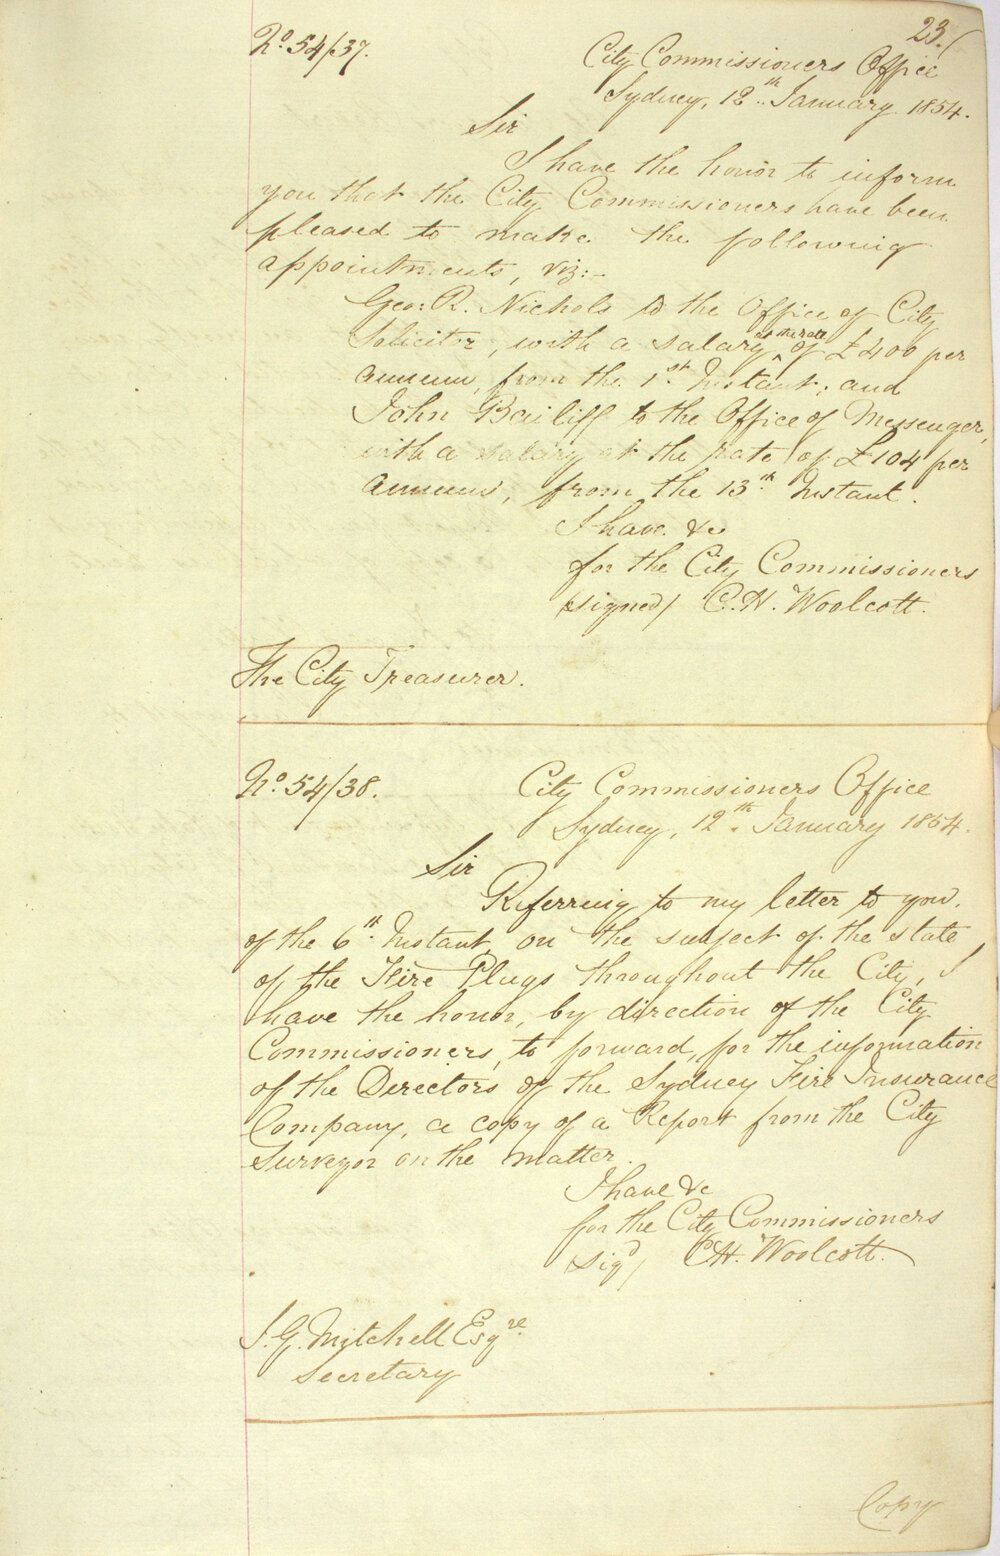 23./
No. 54/37.
City Commissioners Office
Sydney, 12th January 1854.
Sir
I have the honor to inform
you that the City Commissioners have been
pleased to make the following
appointments, viz:-
Geo: R. Nichols to the Office of City
Solicitor, with a salary at the rate of £400 per
annum, from the 1st Instant; and
John Bailiff to the Office of Messenger,
with a salary at the rate of £104 per
annum, from the 13th Instant.
I have &c
for the City Commissioners
(signed) C.H. Woolcott.
The City Treasurer.
No. 54/38.
City Commissioners Office
Sydney, 12th January 1854.
Sir
Referring to my letter to you,
of the 6th Instant, on the subject of the state
of the Fire Plugs throughout the City, I
have the honor, by direction of the City
Commissioners, to forward, for the information
of the Directors of the Sydney Fire Insurance
Company, a copy of a Report from the City
Surveyor on the matter.
I have &c
for the City Commissioners
sigd/ C.H. Woolcott.
J. G. Mitchell Esqre.
Secretary
Copy